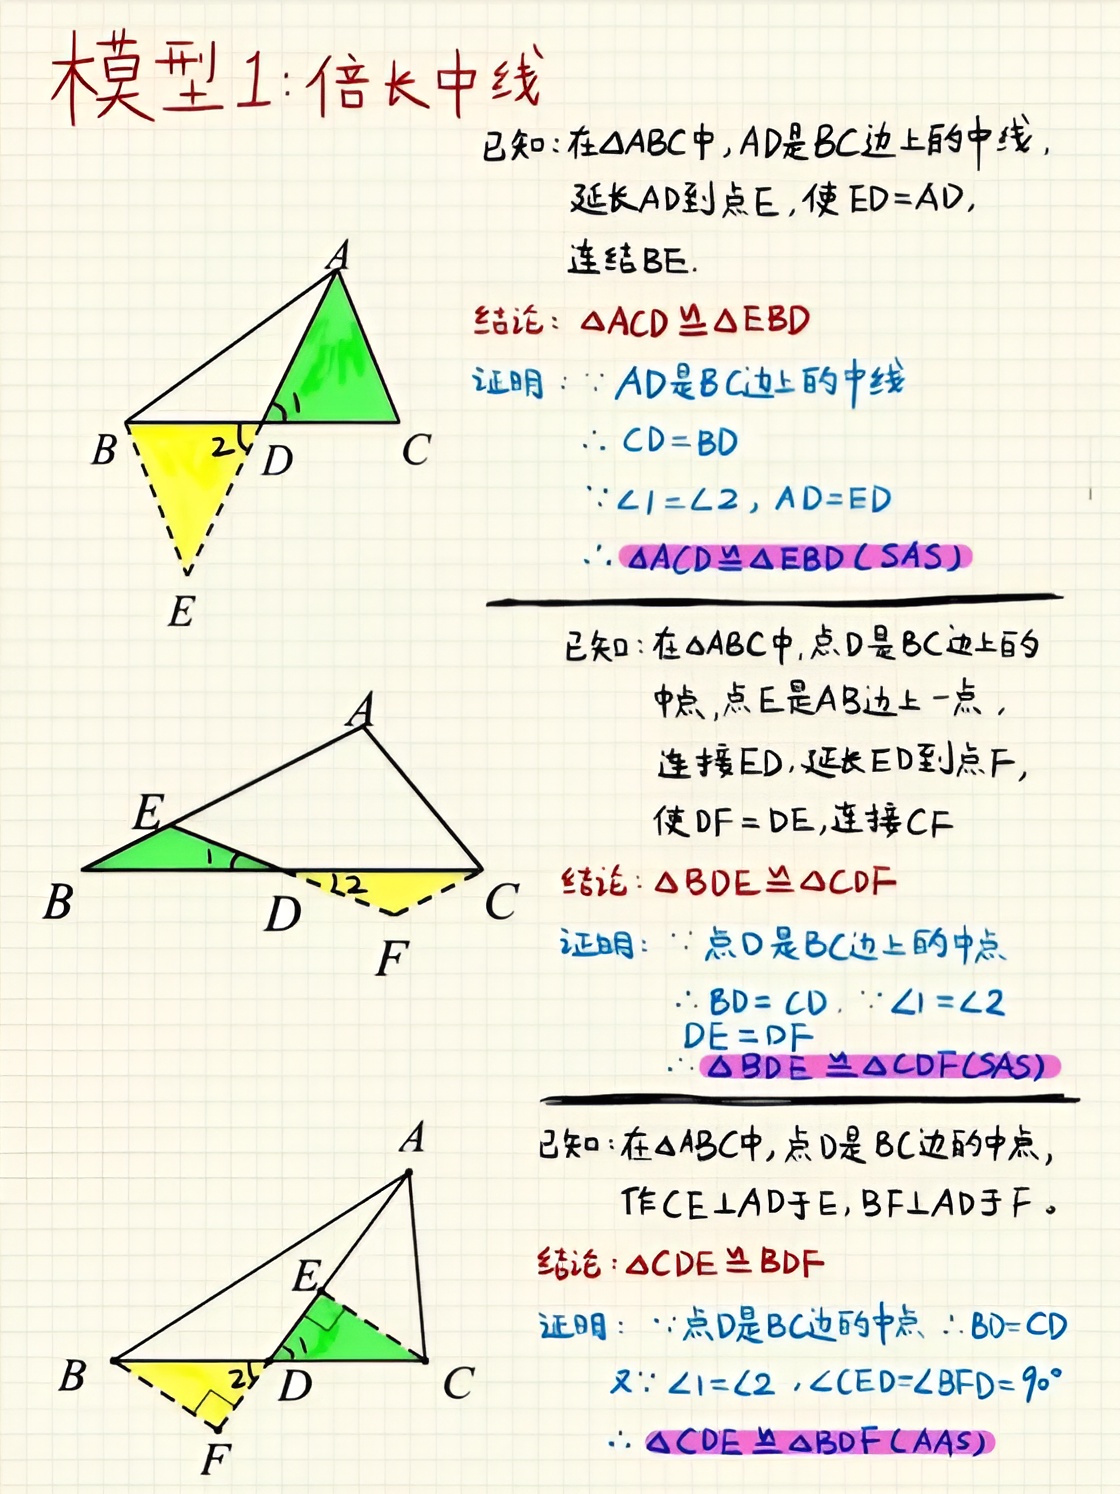 模型1:倍长中线
已知:在△ABC中,AD是BC边上的中线,
延长AD到点E,使ED=AD,
连结BE.
结论:△ACD≌△EBD
证明:∵AD是BC边上的中线
∴CD=BD
∵∠1=∠2,AD=ED
∴△ACD≌△EBD(SAS)
A
1
B
2
D
C
E
已知:在△ABC中,点D是BC边上的
中点,点E是AB边上一点,
连接ED,延长ED到点F,
使DF=DE,连接CF
结论:△BDE≌△CDF
证明:∵点D是BC边上的中点
∴BD=CD.∵∠1=∠2
DE=DF
∴△BDE≌△CDF(SAS)
A
E
1
B
D
∠2
C
F
已知:在△ABC中,点D是BC边的中点,
作CE⊥AD于E,BF⊥AD于F。
结论:△CDE≌BDF
证明:∵点D是BC边的中点∴BD=CD
又∵∠1=∠2,∠CED=∠BFD=90°
∴△CDE≌△BDF(AAS)
A
E
1
B
2
D
C
F